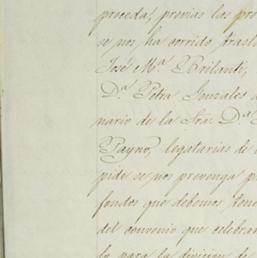 proceda, previas las pro
se nos ha corrido trasla
José Mª Brilanti,
Dª Petra Gonzales
nario de la Sra. Dª
Payno, legatarias de
pide se nos prevenga p
fondos que debemos tene
del convenio que celebra
lo para la division de